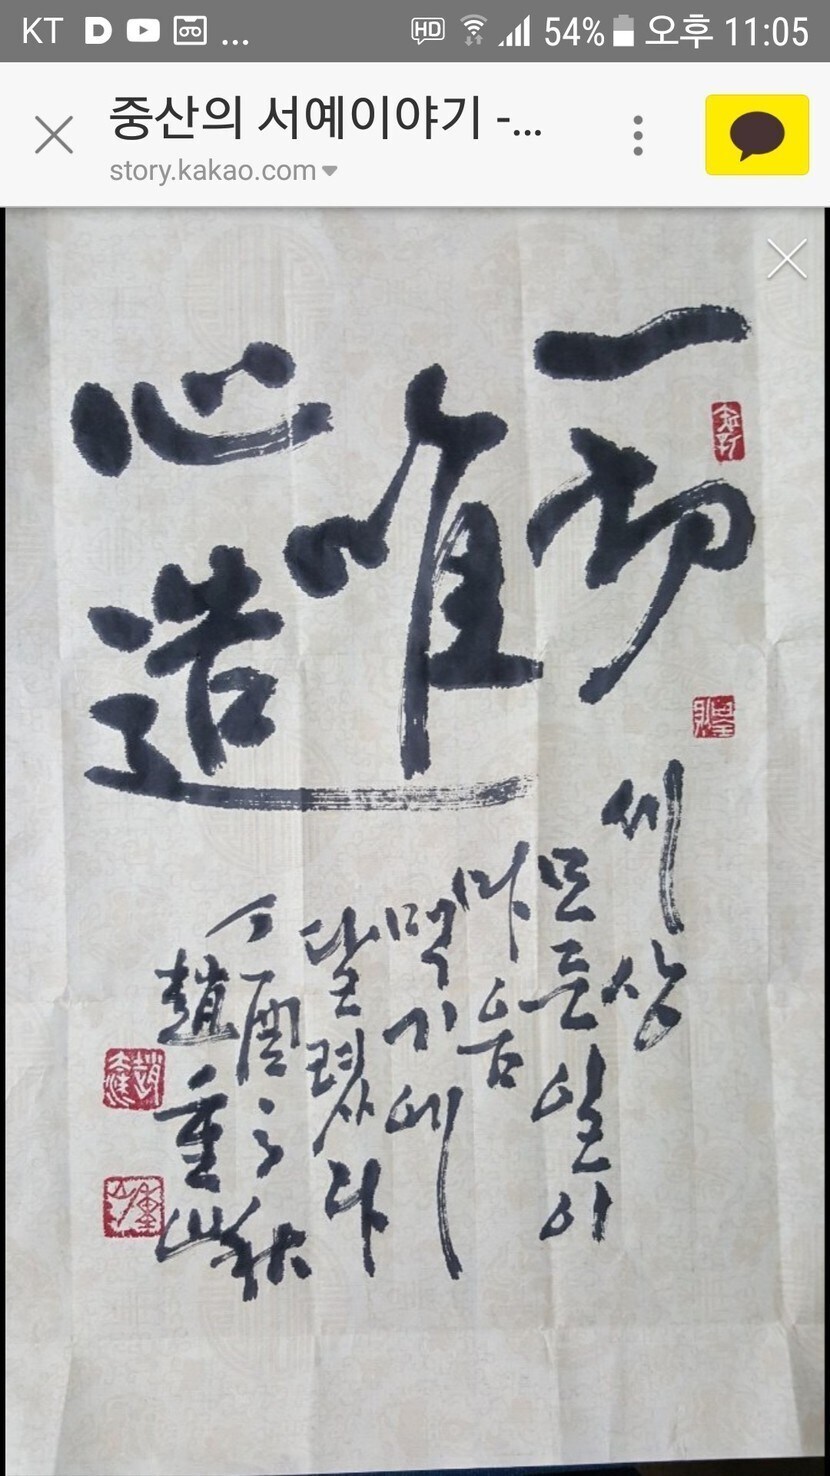 KT D ... HD 54% 오후 11:05
중산의 서예이야기 -...
story.kakao.com
一切
唯
心造
세상
모든 일이
마음
먹기에
달렸다
丁酉之秋
趙重山